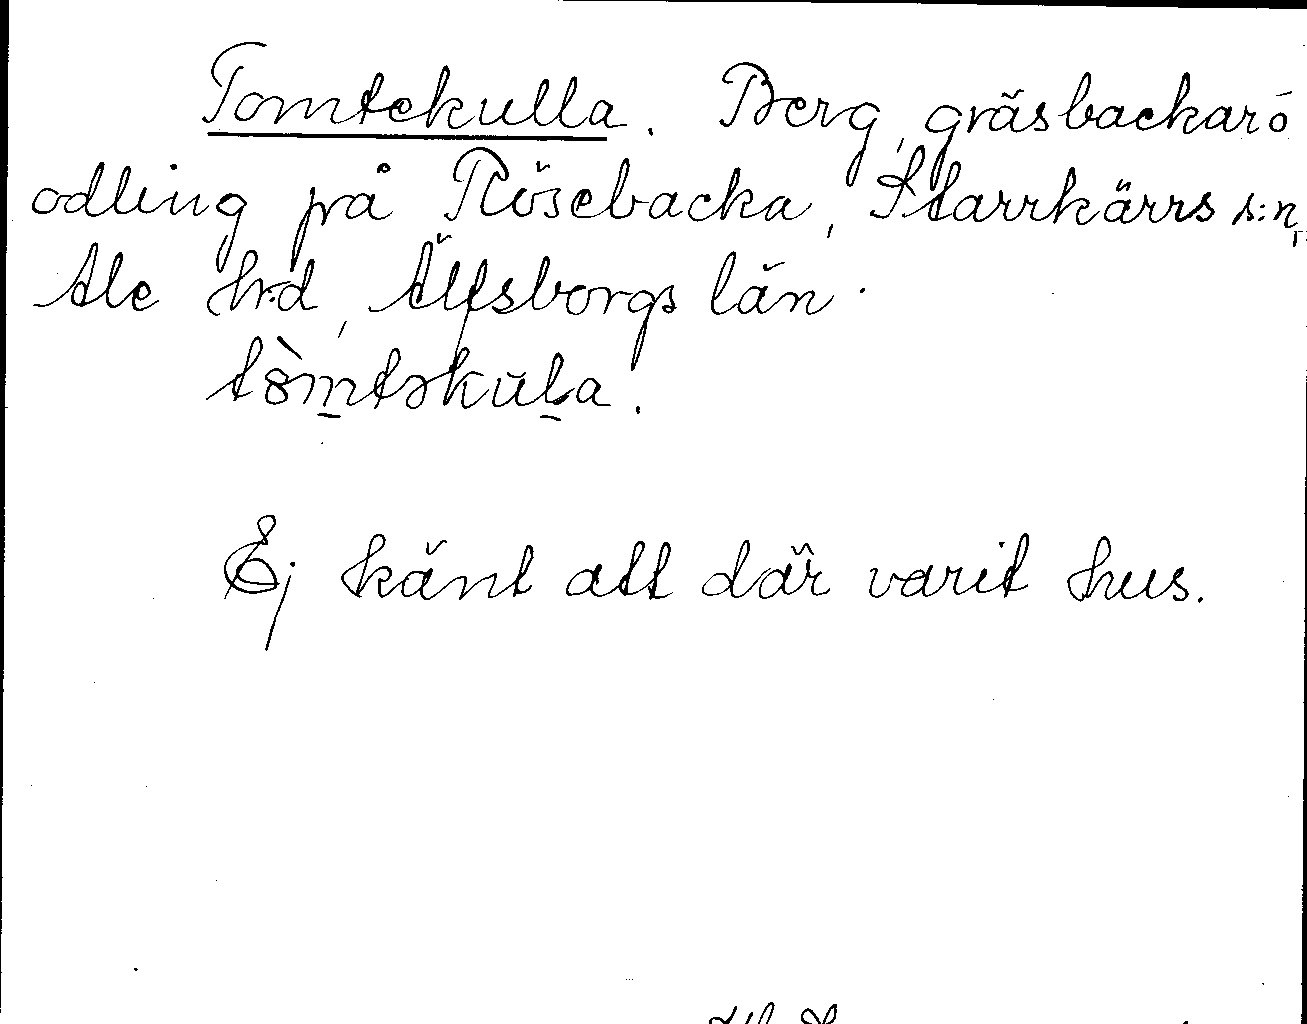 Tomtekulla. Berg, gräsbackar o
odling på Rösebacka, Starrkärrs s:n,
Ale hrd, Älfsborgs län.
tòm̠təkul̠a.
Ej känt att där varit hus.